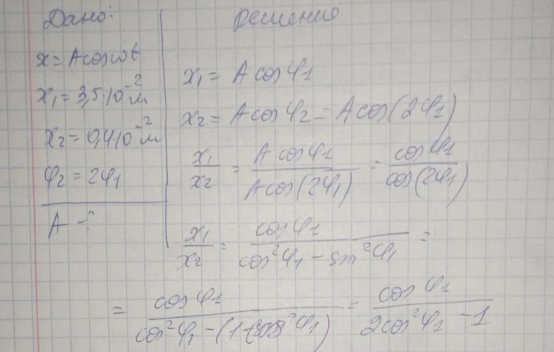 Дано:
x = A cos ωt
x₁ = 3,5·10⁻² м
x₂ = 0,4·10⁻² м
φ₂ = 2φ₁
A - ?
Решение
x₁ = A cos φ₁
x₂ = A cos φ₂ = A cos(2φ₁)
x₁/x₂ = A cos φ₁ / A cos(2φ₁) = cos φ₁ / cos(2φ₁)
x₁/x₂ = cos φ₁ / cos²φ₁ - sin²φ₁ =
= cos φ₁ / cos²φ₁ - (1 - cos²φ₁) = cos φ₁ / 2cos²φ₁ - 1